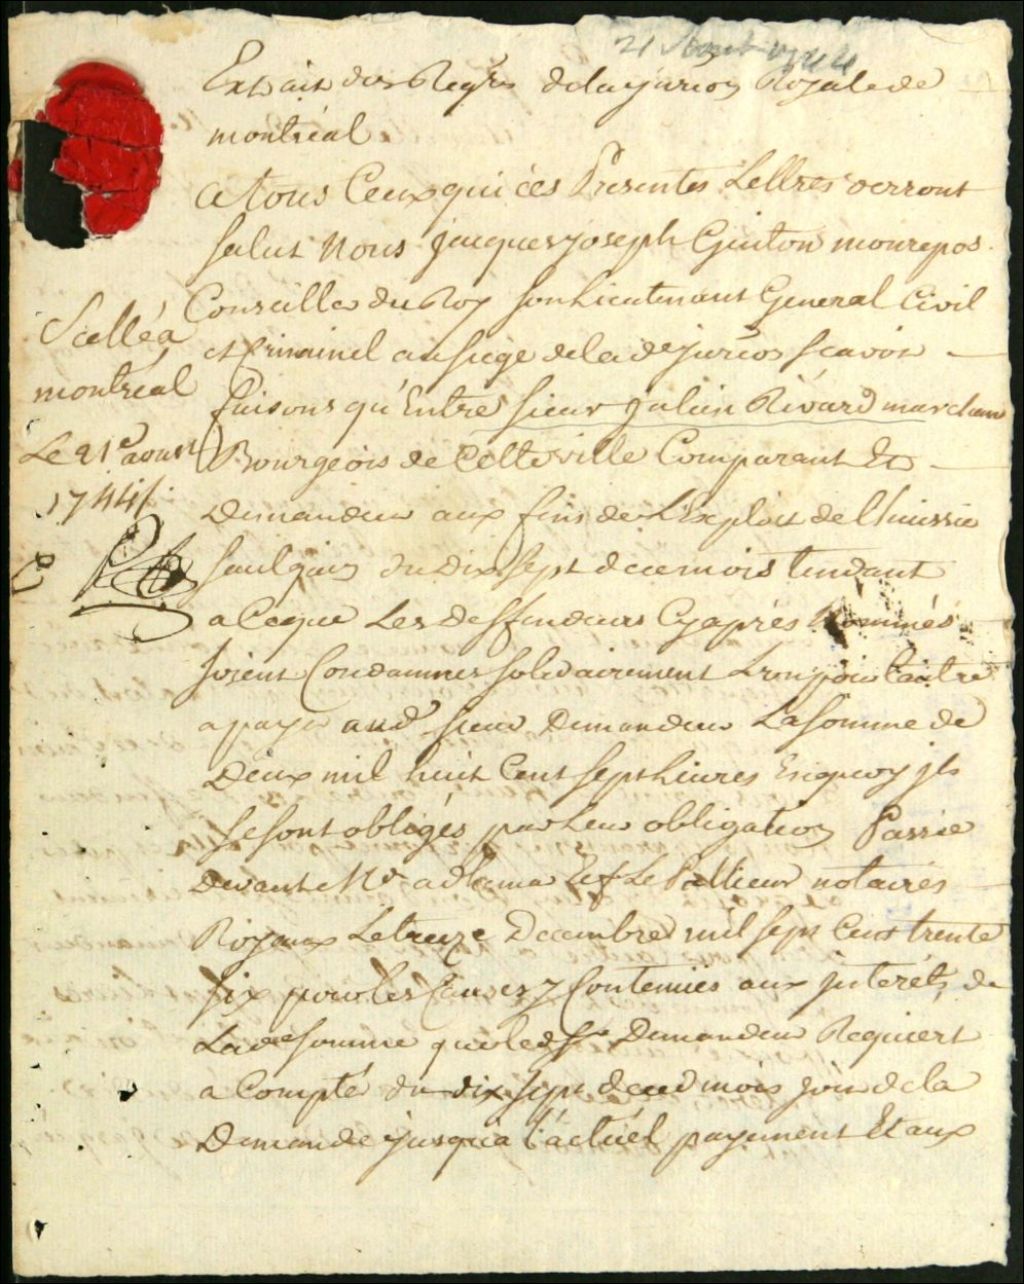 21 Aout 1744
Extrait des Regres de la jurion Royale de
montréal
A tous Ceux qui ces Presentes Lettres verront
salut Nous jacques joseph Guiton monrepos
Conseiller du Roy son Lieutenant General Civil
et Criminel au siege de lade jurion scavoir
faisons qu'Entre sieur julien Rivard marchand
Bourgeois de Cette ville Comparant Et
Demandeur aux fins de L'Exploit de l'huissier
du dix sept de ce mois tendant
a Ceque Les deffendeurs Cyaprés Nommés
soient Condamnes solidairement L'un pour L'autre
a payer aud sieur Demandeur La somme de
Deux mil huit Cent sept Livres Enquoy jls
se sont obligés par Leur obligation Passée
devant Mre adhemar Et Le Pallieur notaires
Royaux Le treize Decembre mil sept Cent trente
six pour les Causes y Contenües aux jnteréts de
Lade somme que led Sr Demandeur Requiert
a Compté du dix sept de ced mois jour de la
Demande jusqu'a l'actüel payement Et aux
Scellé a
montréal
Le 21e aoust
1744